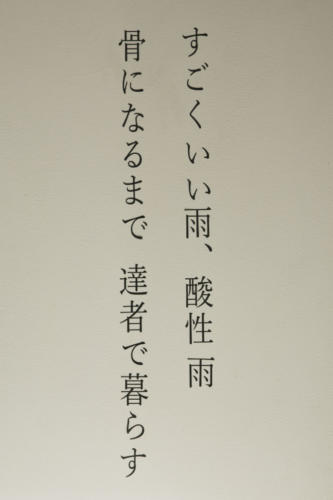 すごくいい雨、酸性雨
骨になるまで 達者で暮らす